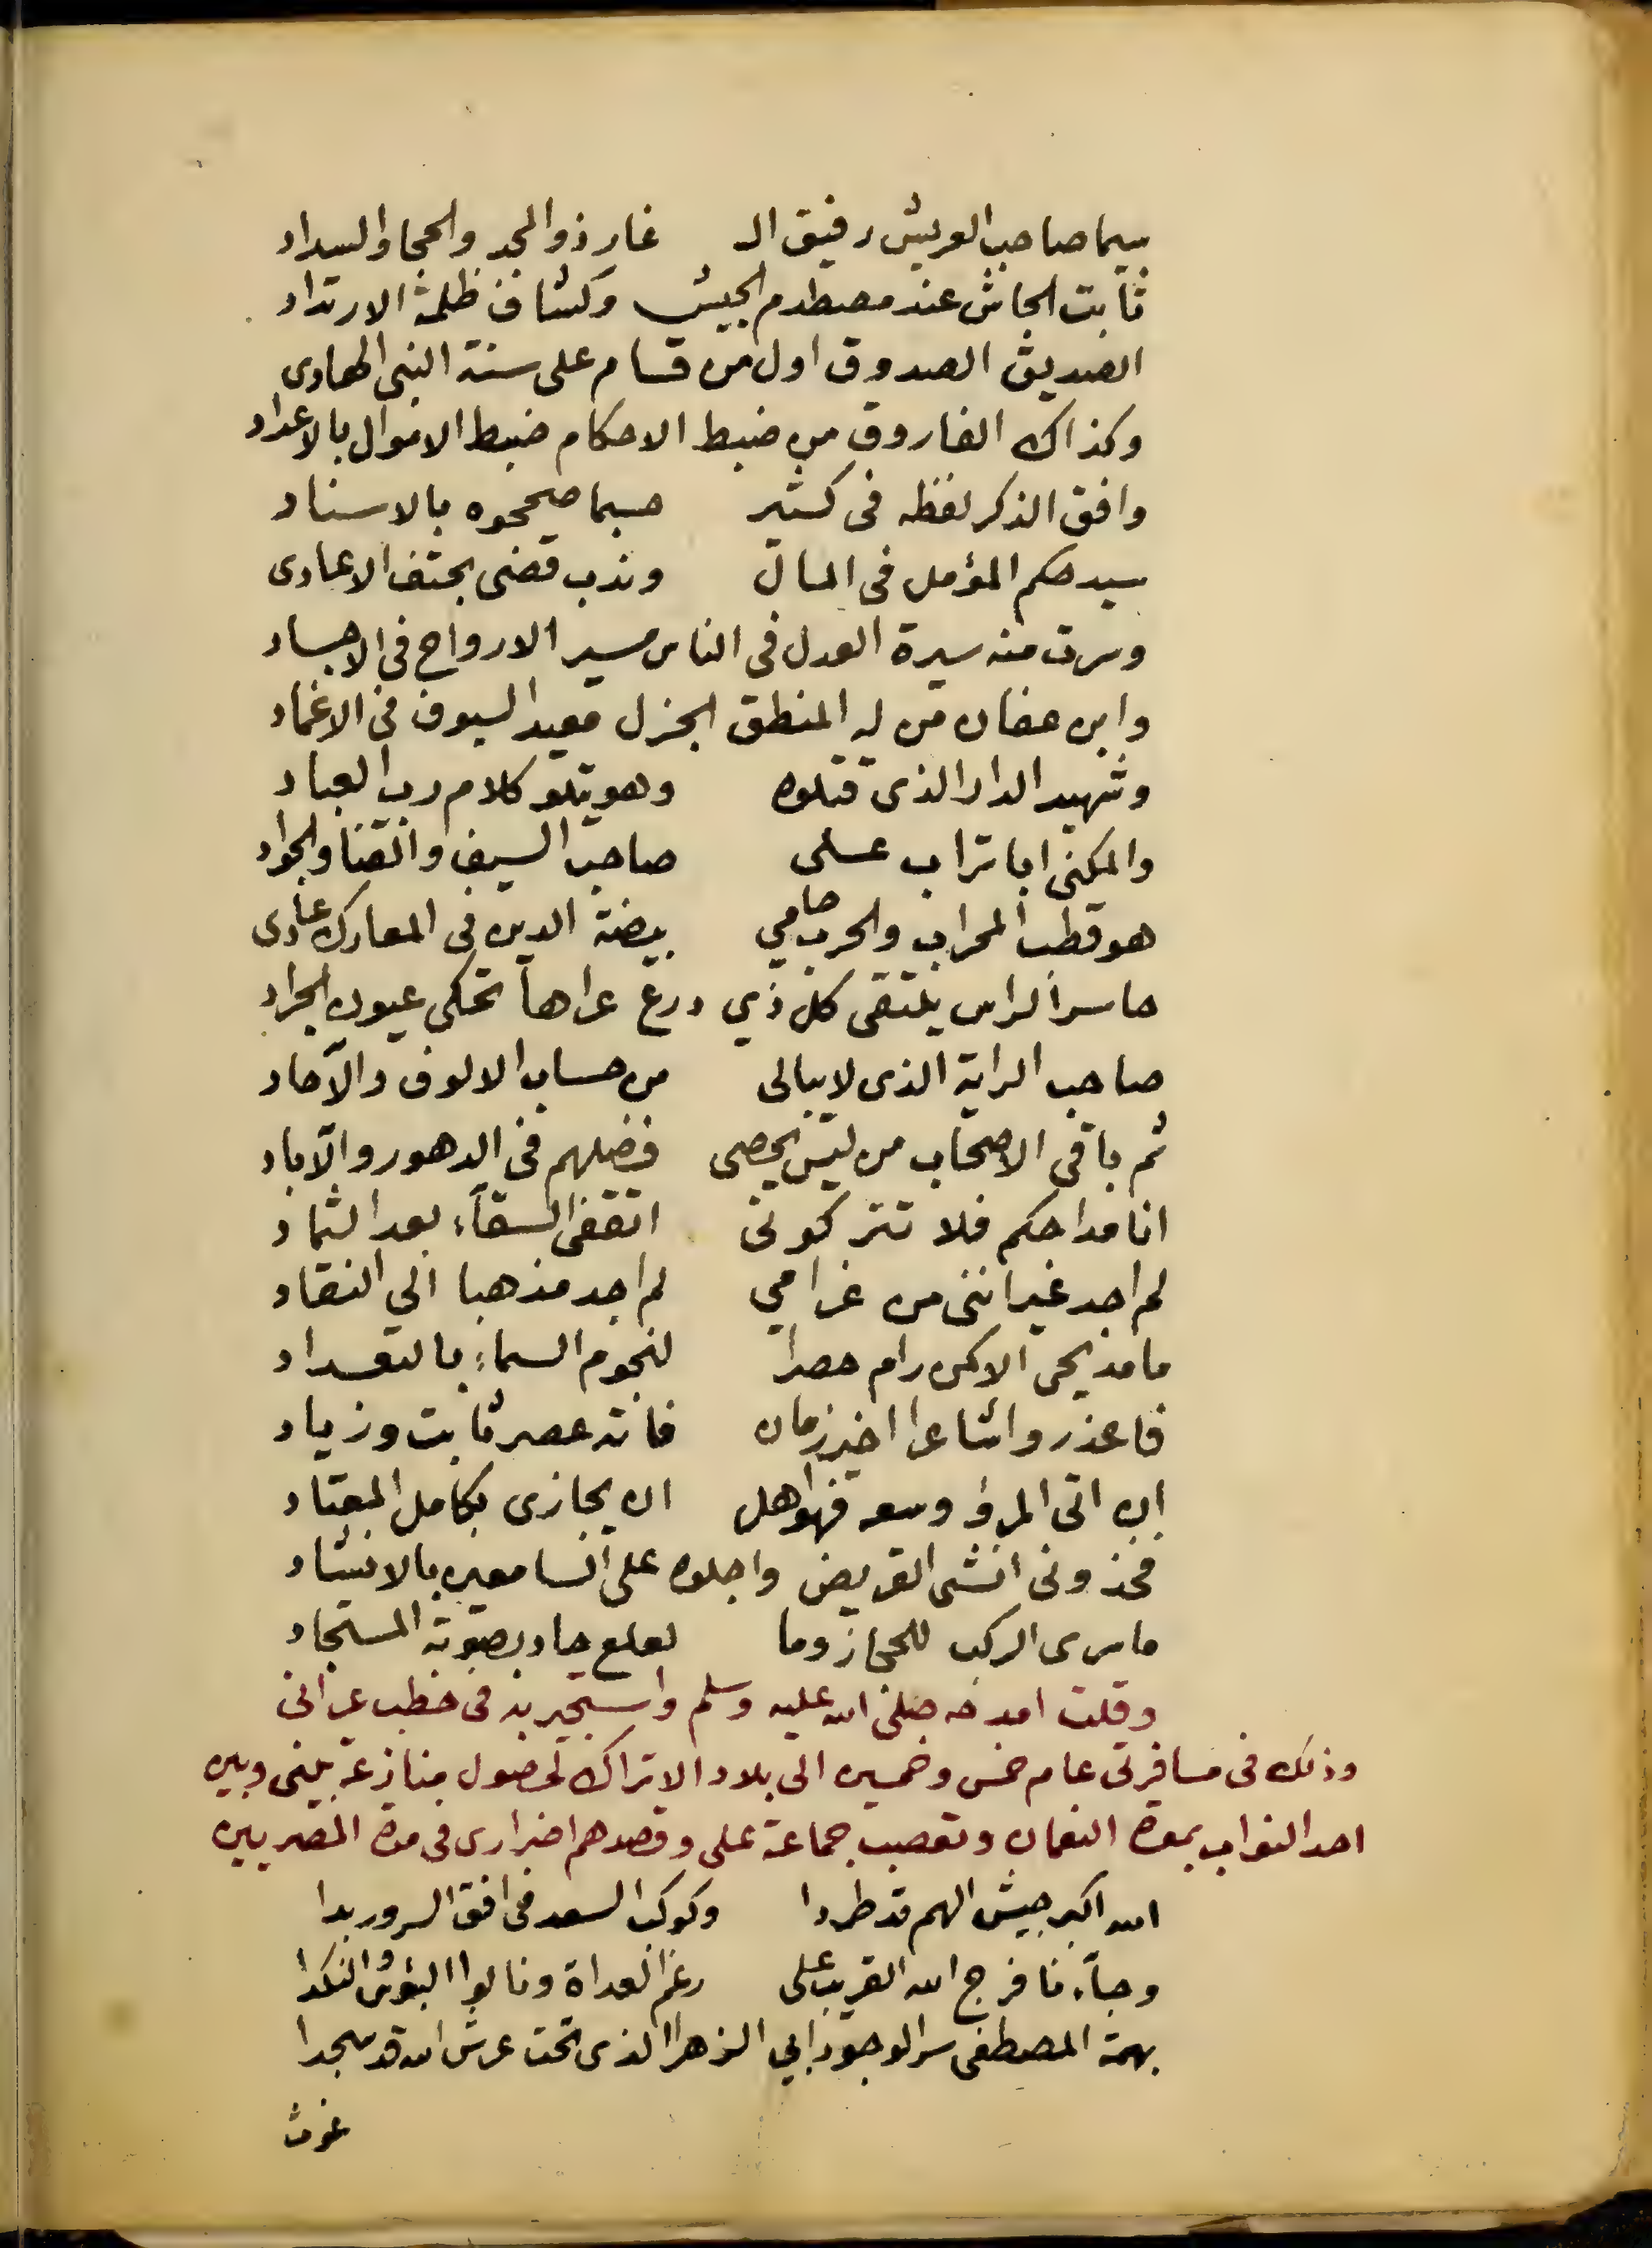 سيما صاحب العريش رفيق الـ غار ذو المجد والحجا والسداد
ثابت الجاش عند مصطدم الجيش وكشاف ظلمة الارتداد
الصديق الصدوق اول من قام على سنة النبي الهادى
وكذاك الفاروق من ضبط الاحكام ضبط الاموال بالاعداد
وافق الذكر لفظه فى كثير حسبما صححوه بالاسناد
سيد حكم المؤمل فى المال وندب قضى بحتف الاعادى
وسرت منه سيرة العدل فى الناس مسير الارواح فى الاجساد
وابن عفان من له المنطق الجزل مقيد السيوف فى الاغماد
وشهيد الدار الذى قتلوه وهو يتلو كلام رب العباد
والمكنى ابا تراب على صاحب السيف والقنا والجواد
هو قطب المحراب والحرب حامي بيضة الدين فى المعارك عادى
حاسر الراس يلتقى كل ذي درع عراها تحكى عيون الجراد
صاحب الراية الذى لا يبالى من حساب الالوف والآحاد
ثم باقى الاصحاب من ليس يحصى فضلهم فى الدهور والآباد
انا مداحكم فلا تتركونى اتقفى السقآء بعد الثماد
لم اجد غير اننى من غرامي لم اجد مذهبا الي النقاد
ما مديحى الا كمن رام حصرا لنجوم السماء بالتعداد
فاعذروا شاعرا اخير زمان فاته عصر ثابت وزياد
ان اتى المرؤ وسعه فهو اهل ان يجازى بكامل المعتاد
فخذونى انشى القريض واجلوه على السامعين بالانشاد
ما سرى الركب للحجاز وما لعلع حاد بصوته المستجاد
وقلت امدحه صلى الله عليه وسلم واستجير به فى خطب عرانى
وذلك فى مسافرتى عام خمس وخمسين الى بلاد الاتراك لحصول منازعة بينى وبين
احد النواب بمعرة النعمان وتعصب جماعة على وقصدهم اضرارى فى مدة المصريين
الله اكبر جيش الهم قد طردا وكوكب السعد فى افق السرور بدا
وجآءنا فرج الله القريب على رغم العداة ونالوا البؤس والنكدا
بهمة المصطفى سر الوجود ابي الزهرا الذى تحت عرش الله قد سجدا
غوث